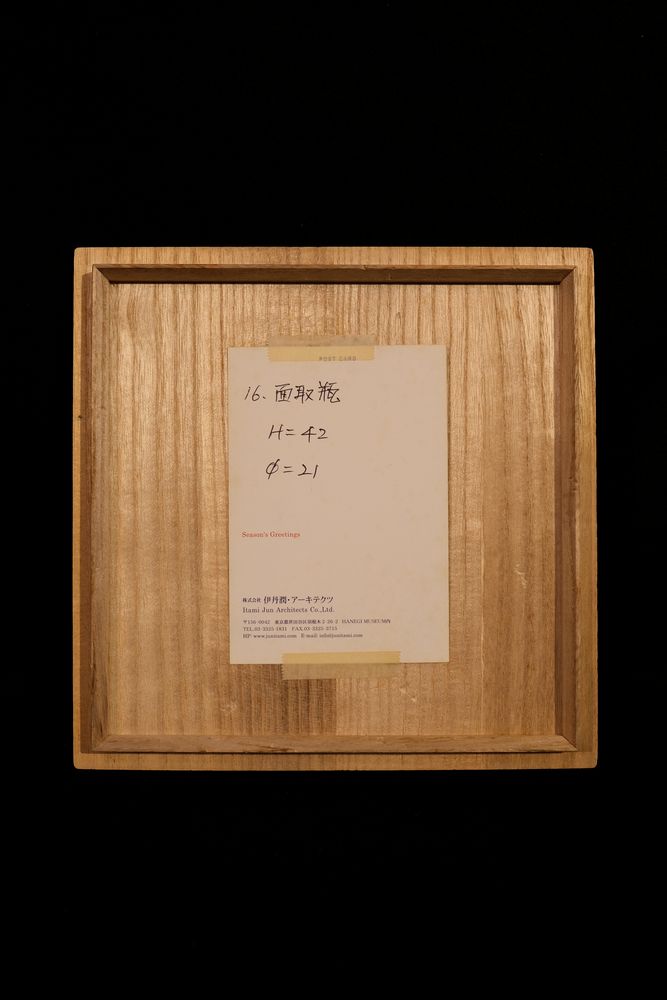 POST CARD
16. 面取瓶
H=42
φ=21
Season's Greetings
株式会社 伊丹潤・アーキテクツ
Itami Jun Architects Co.,Ltd.
〒156-0042 東京都世田谷区羽根木2-26-2 HANEGI MUSEUM内
TEL.03-3325-1831 FAX.03-3325-3715
HP: www.junitami.com E-mail: info@junitami.com